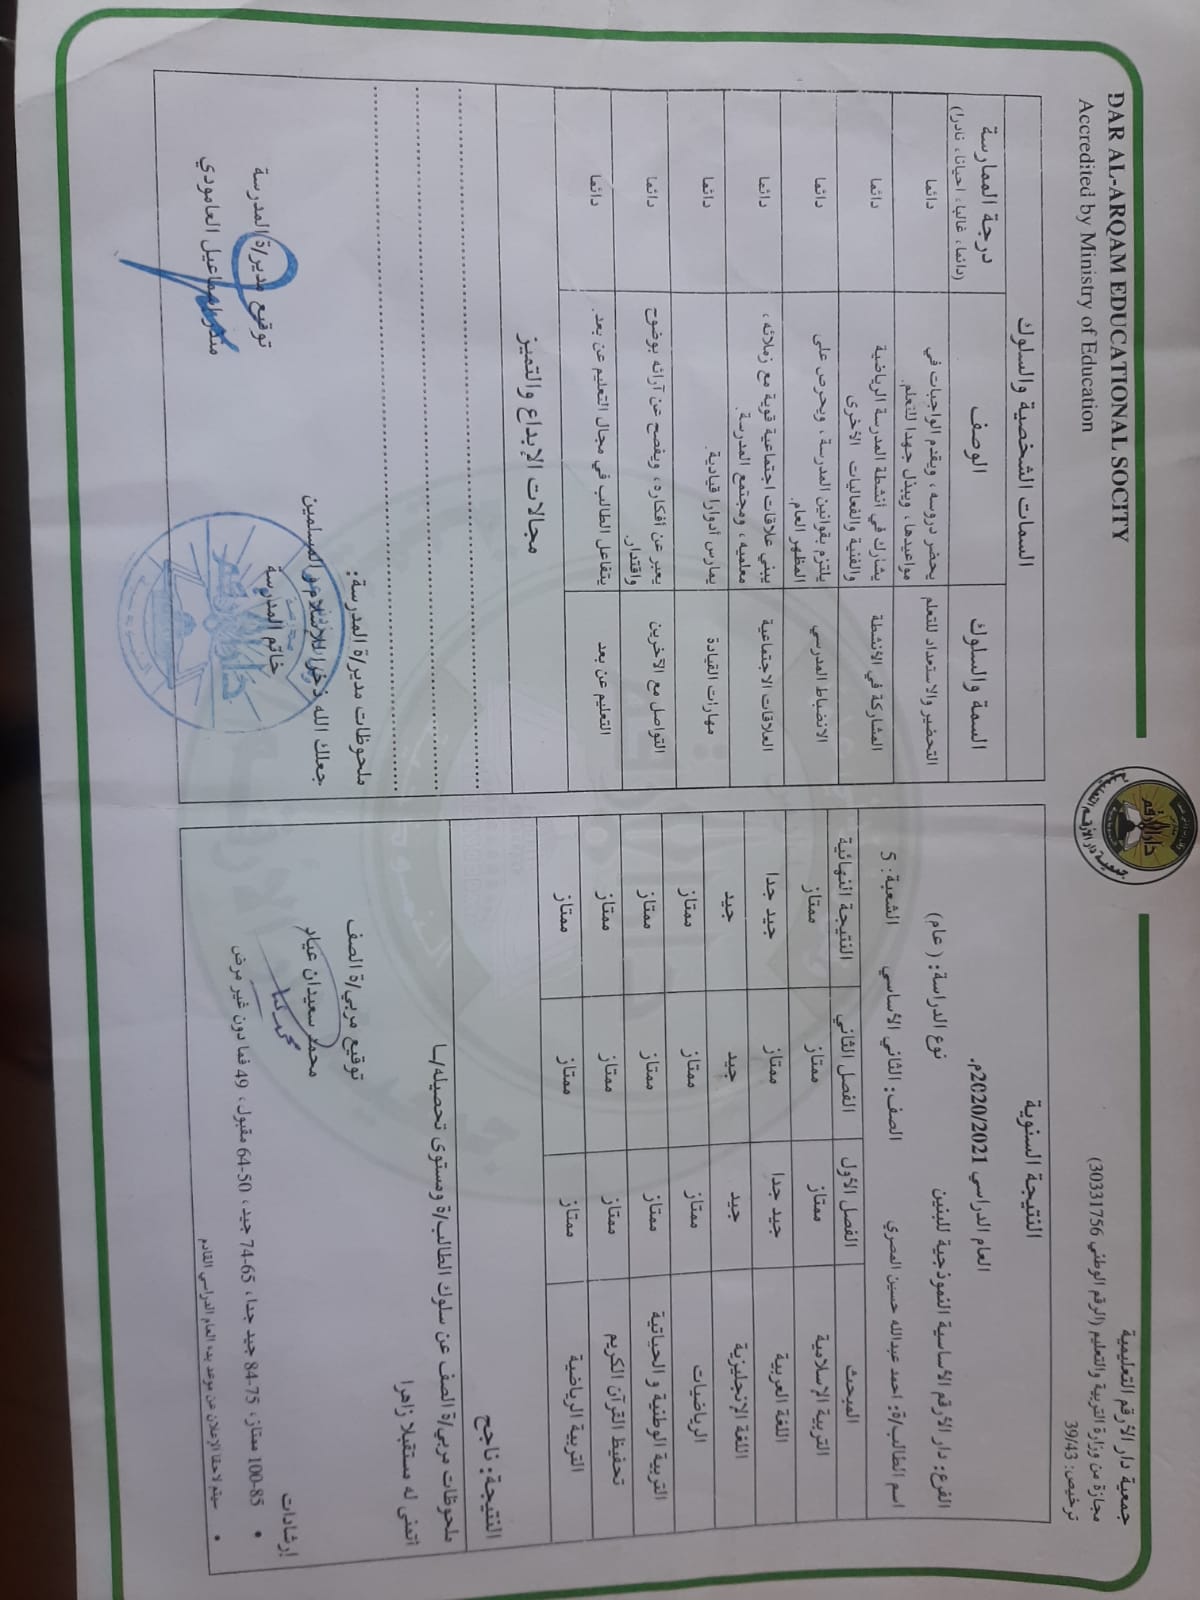 جمعية دار الأرقم التعليمية
مجازة من وزارة التربية والتعليم (الرقم الوطني 30331756)
ترخيص: 39/43
DAR AL-ARQAM EDUCATIONAL SOCITY
Accredited by Ministry of Education
دار الأرقم
النتيجة السنوية
العام الدراسي 2020/2021م.
الفرع: دار الأرقم الأساسية النموذجية للبنين نوع الدراسة: (عام)
اسم الطالب/ة: احمد عبدالله حسين المصري الصف: الثاني الأساسي الشعبة: 5
المبحث الفصل الأول الفصل الثاني النتيجة النهائية
التربية الإسلامية ممتاز ممتاز ممتاز
اللغة العربية جيد جدا ممتاز جيد جدا
اللغة الإنجليزية جيد جيد جيد
الرياضيات ممتاز ممتاز ممتاز
التربية الوطنية و الحياتية ممتاز ممتاز ممتاز
تحفيظ القرآن الكريم ممتاز ممتاز ممتاز
التربية الرياضية ممتاز ممتاز ممتاز
النتيجة: ناجح
ملحوظات مربي/ة الصف عن سلوك الطالب/ة ومستوى تحصيله/ـا
أتمنى له مستقبلا زاهرا
توقيع مربي/ة الصف
محمد سعيدان عياد
إرشادات
• 85-100 ممتاز، 75-84 جيد جدا، 65-74 جيد، 50-64 مقبول، 49 فما دون غير مرض
• سيتم لاحقا الإعلان عن موعد بدء العام الدراسي القادم
السمات الشخصية والسلوك
السمة والسلوك الوصف درجة الممارسة
(دائما، غالبا، أحيانا، نادرا)
التحضير والاستعداد للتعلم يحضر دروسه، ويقدم الواجبات في مواعيدها، ويبذل جهدا للتعلم. دائما
المشاركة في الأنشطة يشارك في أنشطة المدرسة الرياضية والفنية والفعاليات الأخرى دائما
الانضباط المدرسي يلتزم بقوانين المدرسة، ويحرص على المظهر العام. دائما
العلاقات الاجتماعية يبني علاقات اجتماعية قوية مع زملائه، معلميه، ومجتمع المدرسة. دائما
مهارات القيادة يمارس أدوارا قيادية. دائما
التواصل مع الآخرين يعبر عن أفكاره، ويفصح عن آرائه بوضوح واقتدار. دائما
التعليم عن بعد يتفاعل الطالب في مجال التعليم عن بعد. دائما
مجالات الإبداع والتميز
ملحوظات مدير/ة المدرسة:
جعلك الله ذخرا للإسلام و المسلمين
خاتم المدرسة
توقيع مدير/ة المدرسة
منذر اسماعيل العامودي